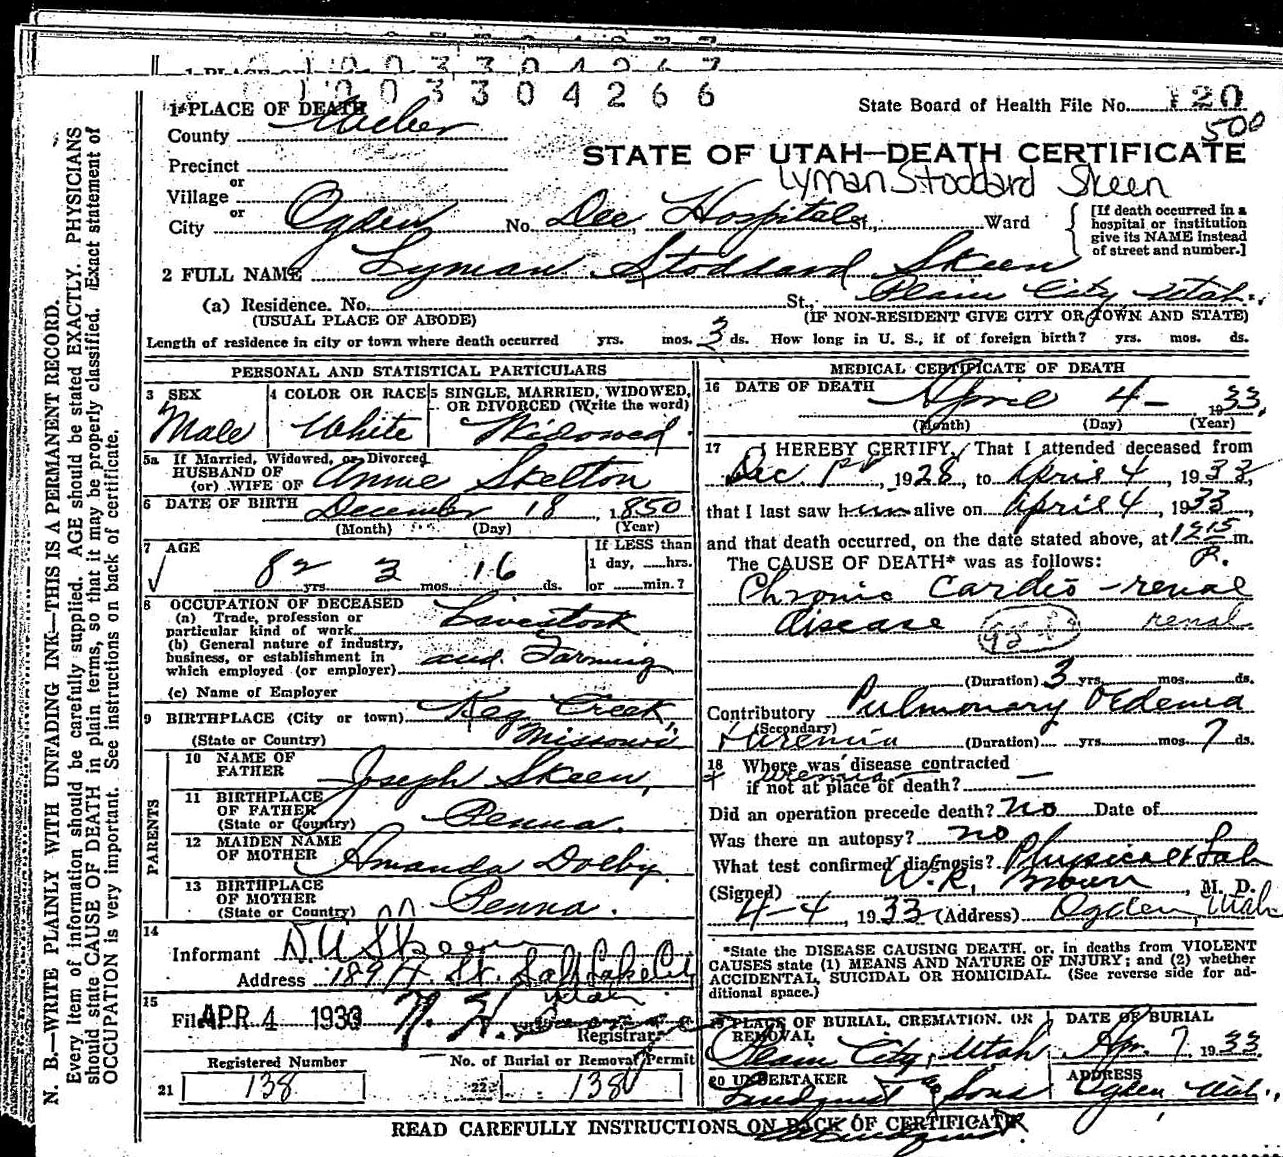 1 0 0 3 3 0 4 2 6 7
0 0 3 3 0 4 2 6 6
1 PLACE OF DEATH
State Board of Health File No. 120
500
County Weber
STATE OF UTAH—DEATH CERTIFICATE
Precinct
Lyman Stoddard Skeen
or
Village
or
City Ogden No. Dee Hospital St., Ward
[If death occurred in a hospital or institution give its NAME instead of street and number.]
2 FULL NAME Lyman Stoddard Skeen
(a) Residence. No. St., Plain City Utah.
(USUAL PLACE OF ABODE) (IF NON-RESIDENT GIVE CITY OR TOWN AND STATE)
Length of residence in city or town where death occurred yrs. mos. 3 ds. How long in U. S., if of foreign birth? yrs. mos. ds.
PERSONAL AND STATISTICAL PARTICULARS
3 SEX 4 COLOR OR RACE 5 SINGLE, MARRIED, WIDOWED,
OR DIVORCED (Write the word)
Male White Widowed
5a If Married, Widowed, or Divorced
HUSBAND OF
(or) WIFE OF Annie Skelton
6 DATE OF BIRTH December 18, 1850
(Month) (Day) (Year)
7 AGE If LESS than
1 day, hrs.
82 yrs. 3 mos. 16 ds. or min.?
8 OCCUPATION OF DECEASED
(a) Trade, profession or
particular kind of work Livestock
(b) General nature of industry,
business, or establishment in
which employed (or employer) and Farming
(c) Name of Employer
9 BIRTHPLACE (City or town) Keg Creek,
(State or Country) Missouri
PARENTS
10 NAME OF
FATHER Joseph Skeen,
11 BIRTHPLACE
OF FATHER
(State or Country) Penna.
12 MAIDEN NAME
OF MOTHER Amanda Dolby
13 BIRTHPLACE
OF MOTHER
(State or Country) Penna.
14
Informant D A Skeen
Address St. Salt Lake City
Utah
15
Filed APR 4 1933
Registrar
Registered Number No. of Burial or Removal Permit
21 138 22 138
MEDICAL CERTIFICATE OF DEATH
16 DATE OF DEATH April 4 - 1933,
(Month) (Day) (Year)
17 I HEREBY CERTIFY, That I attended deceased from
Dec. 1st, 1928, to April 4, 1933,
that I last saw him alive on April 4, 1933,
and that death occurred, on the date stated above, at 1215 m.
P.
The CAUSE OF DEATH* was as follows:
Chronic Cardio-renal
disease renal
(Duration) 3 yrs. mos. ds.
Contributory Pulmonary Oedema
(Secondary)
Uremia (Duration) yrs. mos. 7 ds.
18 Where was disease contracted
if not at place of death? —
& Uremia
Did an operation precede death? no Date of
Was there an autopsy? no
What test confirmed diagnosis? Physical & Lab
(Signed) W. R. Brown, M. D.
4-4, 1933 (Address) Ogden, Utah
*State the DISEASE CAUSING DEATH, or, in deaths from VIOLENT
CAUSES state (1) MEANS AND NATURE OF INJURY; and (2) whether
ACCIDENTAL, SUICIDAL OR HOMICIDAL. (See reverse side for ad-
ditional space.)
19 PLACE OF BURIAL, CREMATION, OR DATE OF BURIAL
REMOVAL
Plain City, Utah Apr. 7 1933
20 UNDERTAKER ADDRESS
Lindquist & Sons Ogden Utah.,
READ CAREFULLY INSTRUCTIONS ON BACK OF CERTIFICATE
N. B.—WRITE PLAINLY WITH UNFADING INK—THIS IS A PERMANENT RECORD.
Every Item of information should be carefully supplied. AGE should be stated EXACTLY. PHYSICIANS
should state CAUSE OF DEATH in plain terms, so that it may be properly classified. Exact statement of
OCCUPATION is very important. See instructions on back of certificate.